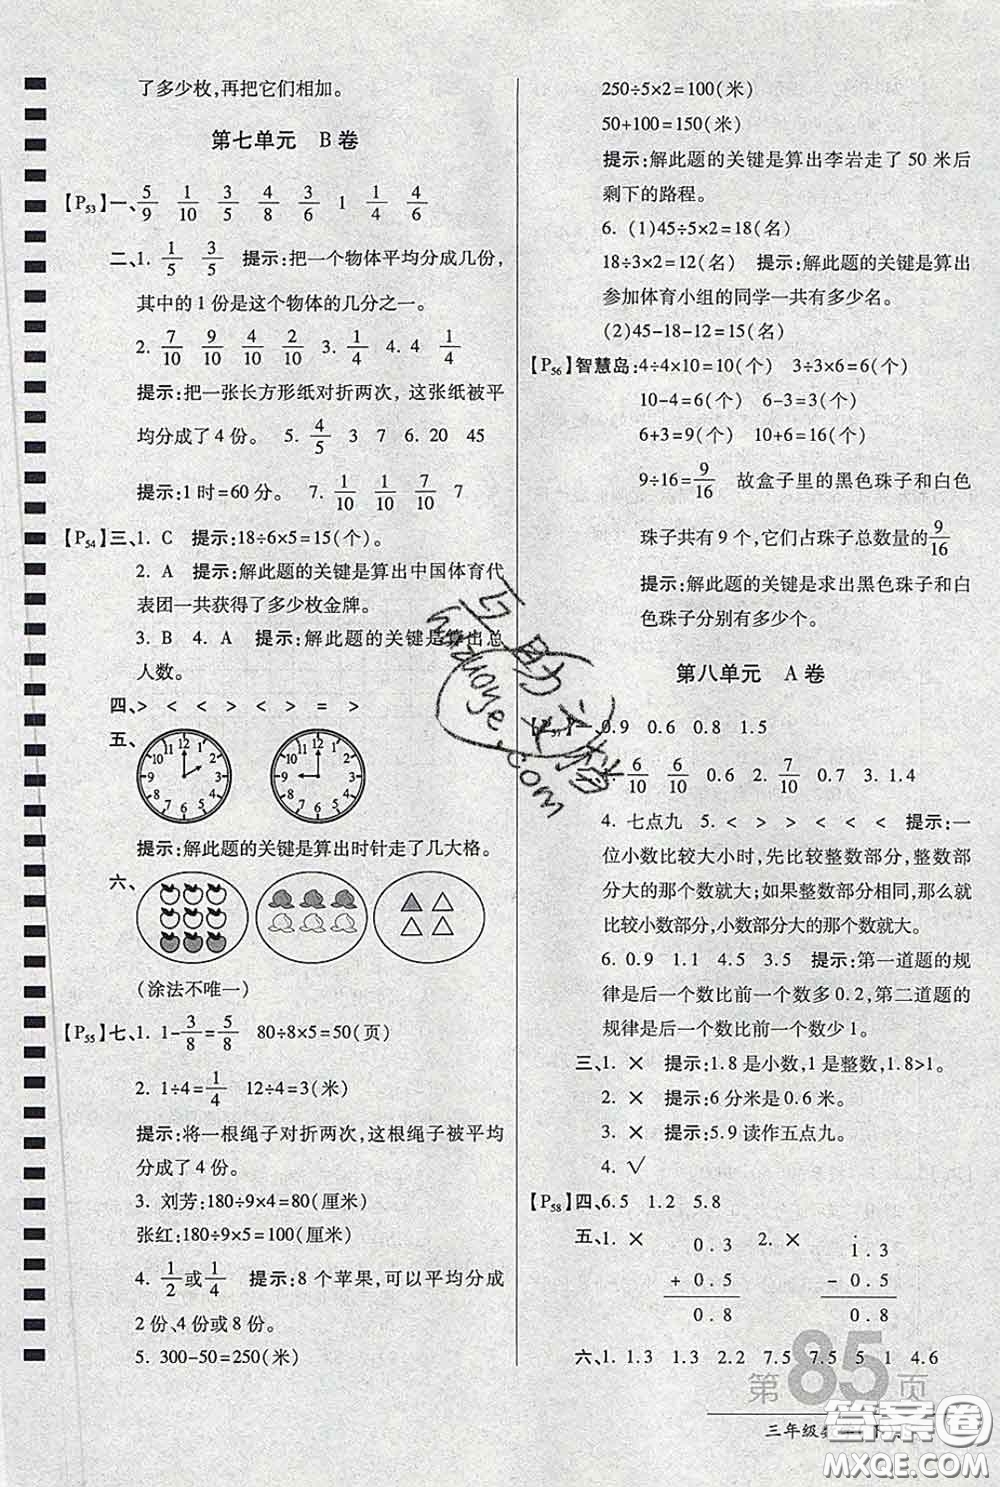 了多少枚,再把它们相加。
第七单元 B卷
【P53】一、5/9 1/10 3/5 4/8 3/6 1 1/4 4/6
二、1. 1/5 3/5 提示:把一个物体平均分成几份,
其中的1份是这个物体的几分之一。
2. 7/10 9/10 4/10 2/10 3. 1/4 4. 4 1/4
提示:把一张长方形纸对折两次,这张纸被平
均分成了4份。 5. 4/5 3 7 6. 20 45
提示:1时=60分。 7. 1/10 1/10 1/10 7
【P54】三、1. C 提示:18÷6×5=15(个)。
2. A 提示:解此题的关键是算出中国体育代
表团一共获得了多少枚金牌。
3. B 4. A 提示:解此题的关键是算出总
人数。
四、> < < > < > = >
五、
12 1 2 3 4 5 6 7 8 9 10 11
12 1 2 3 4 5 6 7 8 9 10 11
提示:解此题的关键是算出时针走了几大格。
六、
(涂法不唯一)
【P55】七、1. 1-3/8=5/8 80÷8×5=50(页)
2. 1÷4=1/4 12÷4=3(米)
提示:将一根绳子对折两次,这根绳子被平均
分成了4份。
3. 刘芳:180÷9×4=80(厘米)
张红:180÷9×5=100(厘米)
4. 1/2或1/4 提示:8个苹果,可以平均分成
2份、4份或8份。
5. 300-50=250(米)
250÷5×2=100(米)
50+100=150(米)
提示:解此题的关键是算出李岩走了50米后
剩下的路程。
6. (1)45÷5×2=18(名)
18÷3×2=12(名) 提示:解此题的关键是算出
参加体育小组的同学一共有多少名。
(2)45-18-12=15(名)
【P56】智慧岛:4÷4×10=10(个) 3÷3×6=6(个)
10-4=6(个) 6-3=3(个)
6+3=9(个) 10+6=16(个)
9÷16=9/16 故盒子里的黑色珠子和白色
珠子共有9个,它们占珠子总数量的9/16
提示:解此题的关键是求出黑色珠子和白
色珠子分别有多少个。
第八单元 A卷
0.9 0.6 0.8 1.5
6/10 6/10 0.6 2. 7/10 0.7 3. 1.4
4. 七点九 5. < > > < < < 提示:一
位小数比较大小时,先比较整数部分,整数部
分大的那个数就大;如果整数部分相同,那么就
比较小数部分,小数部分大的那个数就大。
6. 0.9 1.1 4.5 3.5 提示:第一道题的规
律是后一个数比前一个数多0.2,第二道题的
规律是后一个数比前一个数少1。
三、1. × 提示:1.8是小数,1是整数,1.8>1。
2. × 提示:6分米是0.6米。
3. × 提示:5.9读作五点九。
4. √
【P58】四、6.5 1.2 5.8
五、1. × 2. ×
0.3 1.3
+ 0.5 - 0.5
0.8 0.8
六、1. 1.3 1.3 2.2 7.5 7.5 5 1 4.6
第85页
三年级数
互助文档
huzuoye.com
答案圈
MXQE.COM